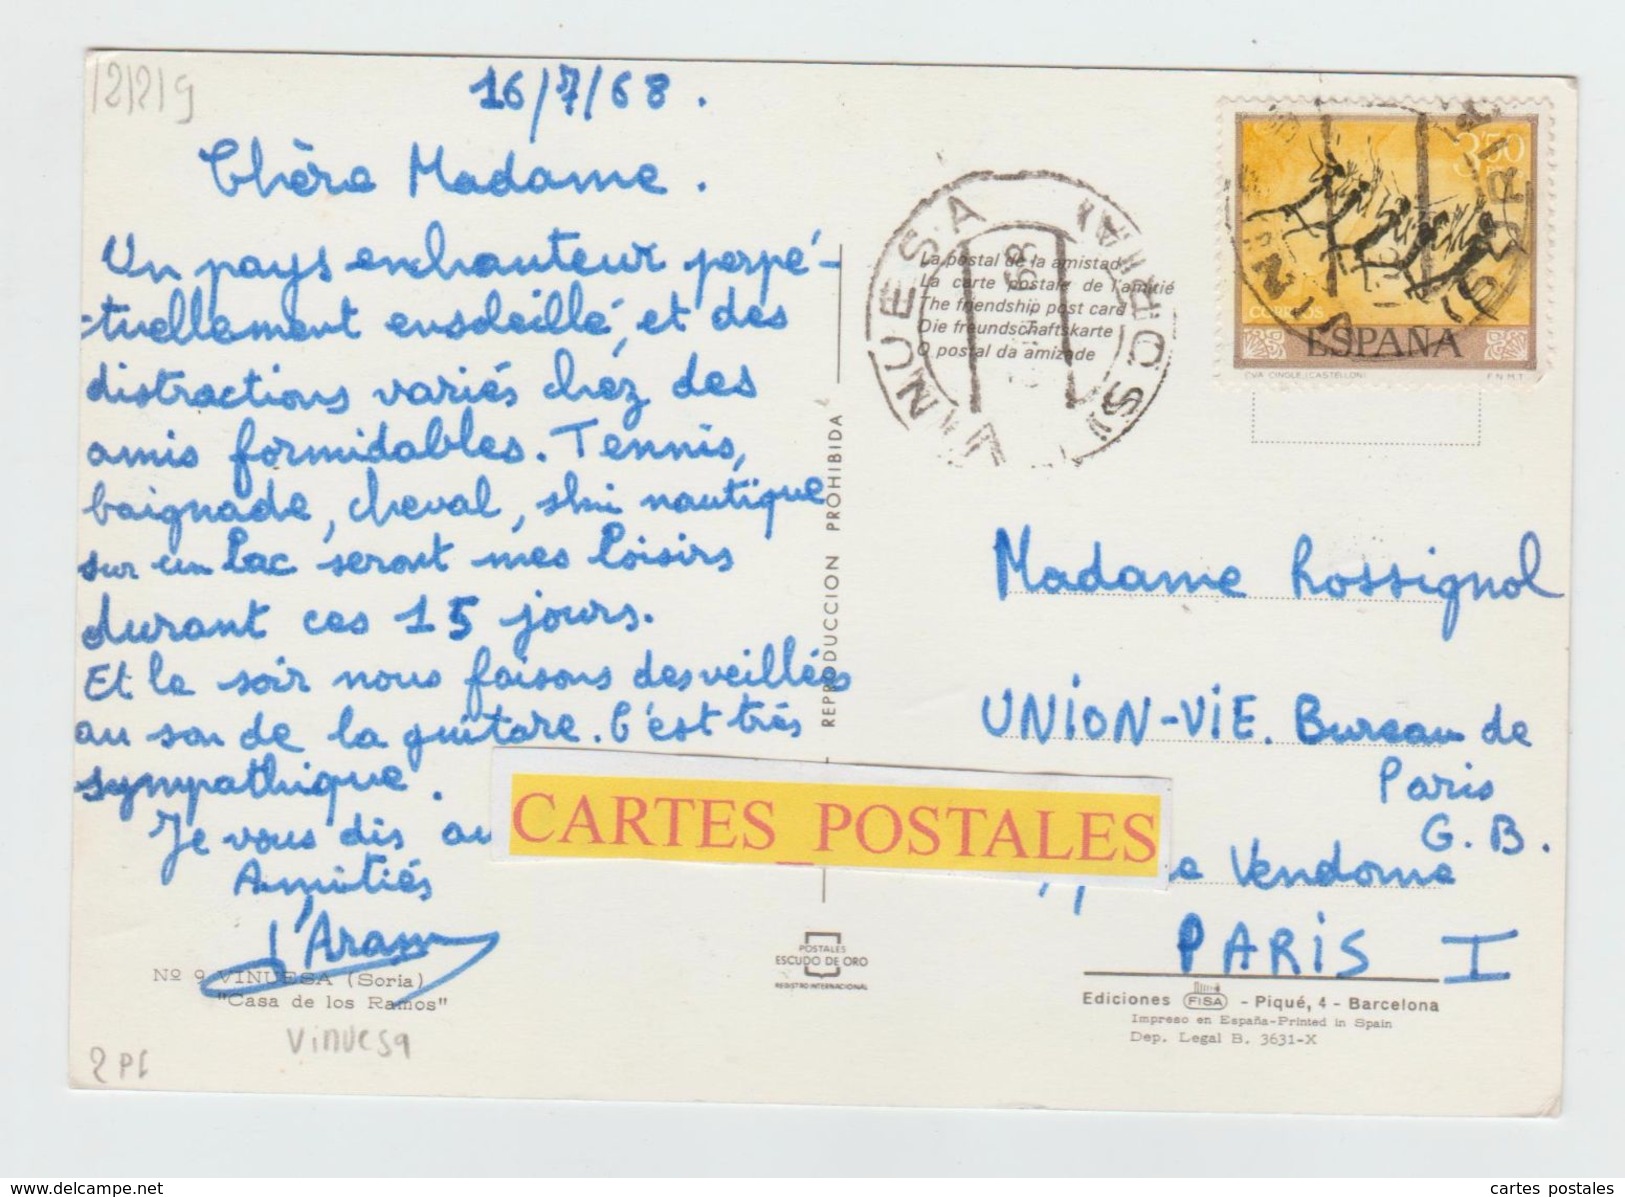 12129
16/7/68.
Chère Madame.
Un pays enchanteur perpé-
-tuellement ensoleillé, et des
distractions variés chéz des
amis formidables. Tennis,
baignade, cheval, ski nautique
sur un lac seront mes loisirs
durant ces 15 jours.
Et le soir nous faisons des veillées
au son de la guitare. C'est très
sympathique.
Je vous dis au
Amitiés
Nº 9 VINUESA (Soria)
"Casa de los Ramos"
Vinuesa
REPRODUCCION PROHIBIDA
POSTALES
ESCUDO DE ORO
REGISTRO INTERNACIONAL
VINUESA
68
La postal de la amistad
La carte postale de l'amitié
The friendship post card
Die freundschaftskarte
O postal da amizade
3'50
CORREOS
ESPAÑA
CVA CINGLE (CASTELLON)
F.N.M.T.
Madame Rossignol
UNION-VIE. Bureau de
Paris
G. B.
Vendome
PARIS I
CARTES_POSTALES
Ediciones FISA - Piqué, 4 - Barcelona
Impreso en España-Printed in Spain
Dep. Legal B. 3631-X
www.delcampe.net
cartes postales